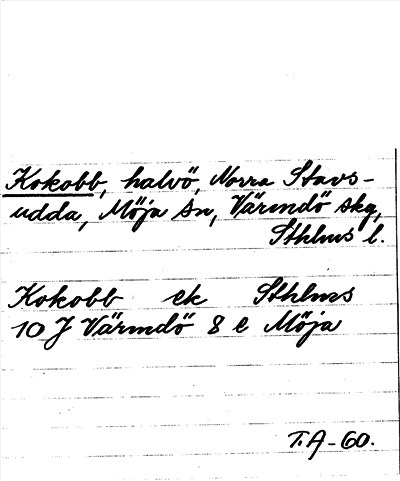 Kokobb, halvö, Norra Stavs-
udda, Möja sn, Värmdö skg,
Sthlms l.
Kokobb ek Sthlms
10 J Värmdö 8 e Möja
T.A-60.